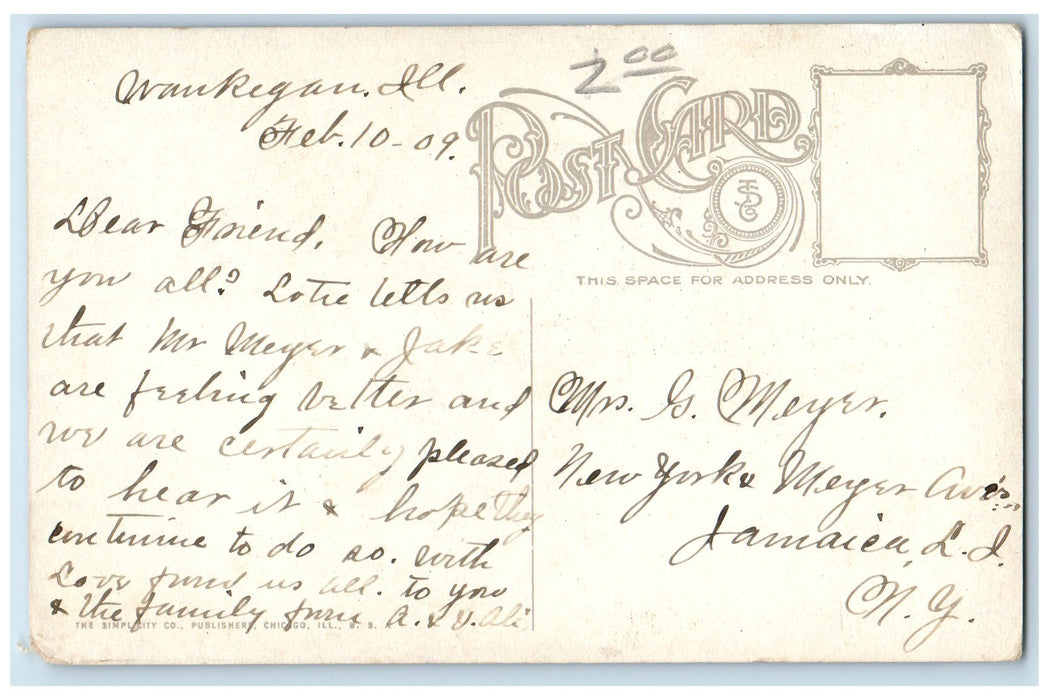 Waukegan. Ill.
Feb. 10-09.
Dear Friend. How are
you all? Lotie tells us
that Mr Meyer & Jake
are feeling better and
we are certainly pleased
to hear it & hope they
continue to do so. with
Love from us all. to you
& the family from A. & V. Ali
THE SIMPLICITY CO., PUBLISHERS, CHICAGO, ILL., U. S.
2 00
POST CARD
THIS SPACE FOR ADDRESS ONLY.
Mrs. G. Meyer.
New York & Meyer Aves
Jamaica L. I.
N. Y.